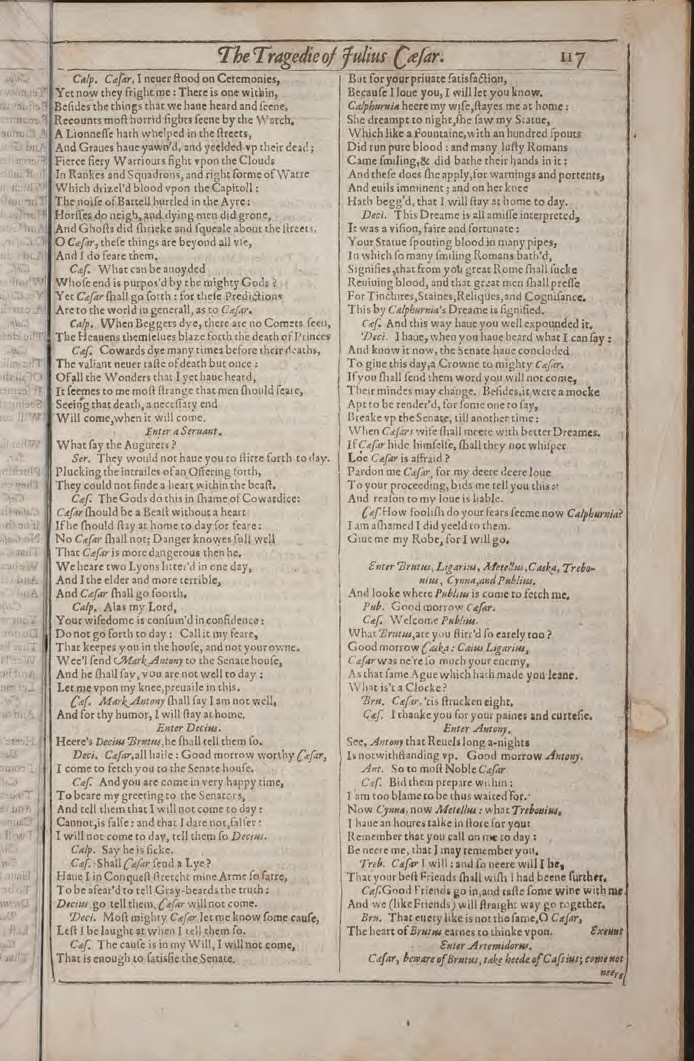 The Tragedie of Julius Cæsar. 117
Calp. Cæsar, I neuer stood on Ceremonies,
Yet now they fright me: There is one within,
Besides the things that we haue heard and seene,
Recounts most horrid sights seene by the Watch.
A Lionnesse hath whelped in the streets,
And Graues haue yawn'd, and yeelded vp their dead;
Fierce fiery Warriours fight vpon the Clouds
In Rankes and Squadrons, and right forme of Warre
Which drizel'd blood vpon the Capitoll:
The noise of Battell hurtled in the Ayre:
Horsses do neigh, and dying men did grone,
And Ghosts did shrieke and squeale about the streets.
O Cæsar, these things are beyond all vse,
And I do feare them.
Cæs. What can be auoyded
Whose end is purpos'd by the mighty Gods?
Yet Cæsar shall go forth: for these Predictions
Are to the world in generall, as to Cæsar.
Calp. When Beggers dye, there are no Comets seen,
The Heauens themselues blaze forth the death of Princes
Cæs. Cowards dye many times before their deaths,
The valiant neuer taste of death but once:
Of all the Wonders that I yet haue heard,
It seemes to me most strange that men should feare,
Seeing that death, a necessary end
Will come, when it will come.
Enter a Seruant.
What say the Augurers?
Ser. They would not haue you to stirre forth to day.
Plucking the intrailes of an Offering forth,
They could not finde a heart within the beast.
Cæs. The Gods do this in shame of Cowardice:
Cæsar should be a Beast without a heart
If he should stay at home to day for feare:
No Cæsar shall not; Danger knowes full well
That Cæsar is more dangerous then he.
We heare two Lyons litter'd in one day,
And I the elder and more terrible,
And Cæsar shall go foorth.
Calp. Alas my Lord,
Your wisedome is consum'd in confidence:
Do not go forth to day: Call it my feare,
That keepes you in the house, and not your owne.
Wee'l send Mark Antony to the Senate house,
And he shall say, you are not well to day:
Let me vpon my knee, preuaile in this.
Cæs. Mark Antony shall say I am not well,
And for thy humor, I will stay at home.
Enter Decius.
Heere's Decius Brutus, he shall tell them so.
Deci. Cæsar, all haile: Good morrow worthy Cæsar,
I come to fetch you to the Senate house.
Cæs. And you are come in very happy time,
To beare my greeting to the Senators,
And tell them that I will not come to day:
Cannot, is false: and that I dare not, falser:
I will not come to day, tell them so Decius.
Calp. Say he is sicke.
Cæs. Shall Cæsar send a Lye?
Haue I in Conquest stretcht mine Arme so farre,
To be afear'd to tell Gray-beards the truth:
Decius, go tell them, Cæsar will not come.
Deci. Most mighty Cæsar, let me know some cause,
Lest I be laught at when I tell them so.
Cæs. The cause is in my Will, I will not come,
That is enough to satisfie the Senate.
But for your priuate satisfaction,
Because I loue you, I will let you know.
Calphurnia heere my wife, stayes me at home:
She dreampt to night, she saw my Statue,
Which like a Fountaine, with an hundred spouts
Did run pure blood: and many lusty Romans
Came smiling, & did bathe their hands in it:
And these does she apply, for warnings and portents,
And euils imminent; and on her knee
Hath begg'd, that I will stay at home to day.
Deci. This Dreame is all amisse interpreted,
It was a vision, faire and fortunate:
Your Statue spouting blood in many pipes,
In which so many smiling Romans bath'd,
Signifies, that from you great Rome shall sucke
Reuiuing blood, and that great men shall presse
For Tinctures, Staines, Reliques, and Cognisance.
This by Calphurnia's Dreame is signified.
Cæs. And this way haue you well expounded it.
Deci. I haue, when you haue heard what I can say:
And know it now, the Senate haue concluded
To giue this day, a Crowne to mighty Cæsar.
If you shall send them word you will not come,
Their mindes may change. Besides, it were a mocke
Apt to be render'd, for some one to say,
Breake vp the Senate, till another time:
When Cæsars wife shall meete with better Dreames.
If Cæsar hide himselfe, shall they not whisper
Loe Cæsar is affraid?
Pardon me Cæsar, for my deere deere loue
To your proceeding, bids me tell you this:
And reason to my loue is liable.
Cæs. How foolish do your fears seeme now Calphurnia?
I am ashamed I did yeeld to them.
Giue me my Robe, for I will go.
Enter Brutus, Ligarius, Metellus, Caska, Trebo-
nius, Cynna, and Publius.
And looke where Publius is come to fetch me.
Pub. Good morrow Cæsar.
Cæs. Welcome Publius.
What Brutus, are you stirr'd so earely too?
Good morrow Caska: Caius Ligarius,
Cæsar was ne're so much your enemy,
As that same Ague which hath made you leane.
What is't a Clocke?
Bru. Cæsar, 'tis strucken eight.
Cæs. I thanke you for your paines and curtesie.
Enter Antony.
See, Antony that Reuels long a-nights
Is notwithstanding vp. Good morrow Antony.
Ant. So to most Noble Cæsar
Cæs. Bid them prepare within:
I am too blame to be thus waited for.
Now Cynna, now Metellus: what Trebonius,
I haue an houres talke in store for you:
Remember that you call on me to day:
Be neere me, that I may remember you.
Treb. Cæsar I will: and so neere will I be,
That your best Friends shall wish I had beene further.
Cæs. Good Friends go in, and taste some wine with me.
And we (like Friends) will straight way go together.
Bru. That euery like is not the same, O Cæsar,
The heart of Brutus earnes to thinke vpon. Exeunt
Enter Artemidorus.
Cæsar, beware of Brutus, take heede of Cassius; come not
neere